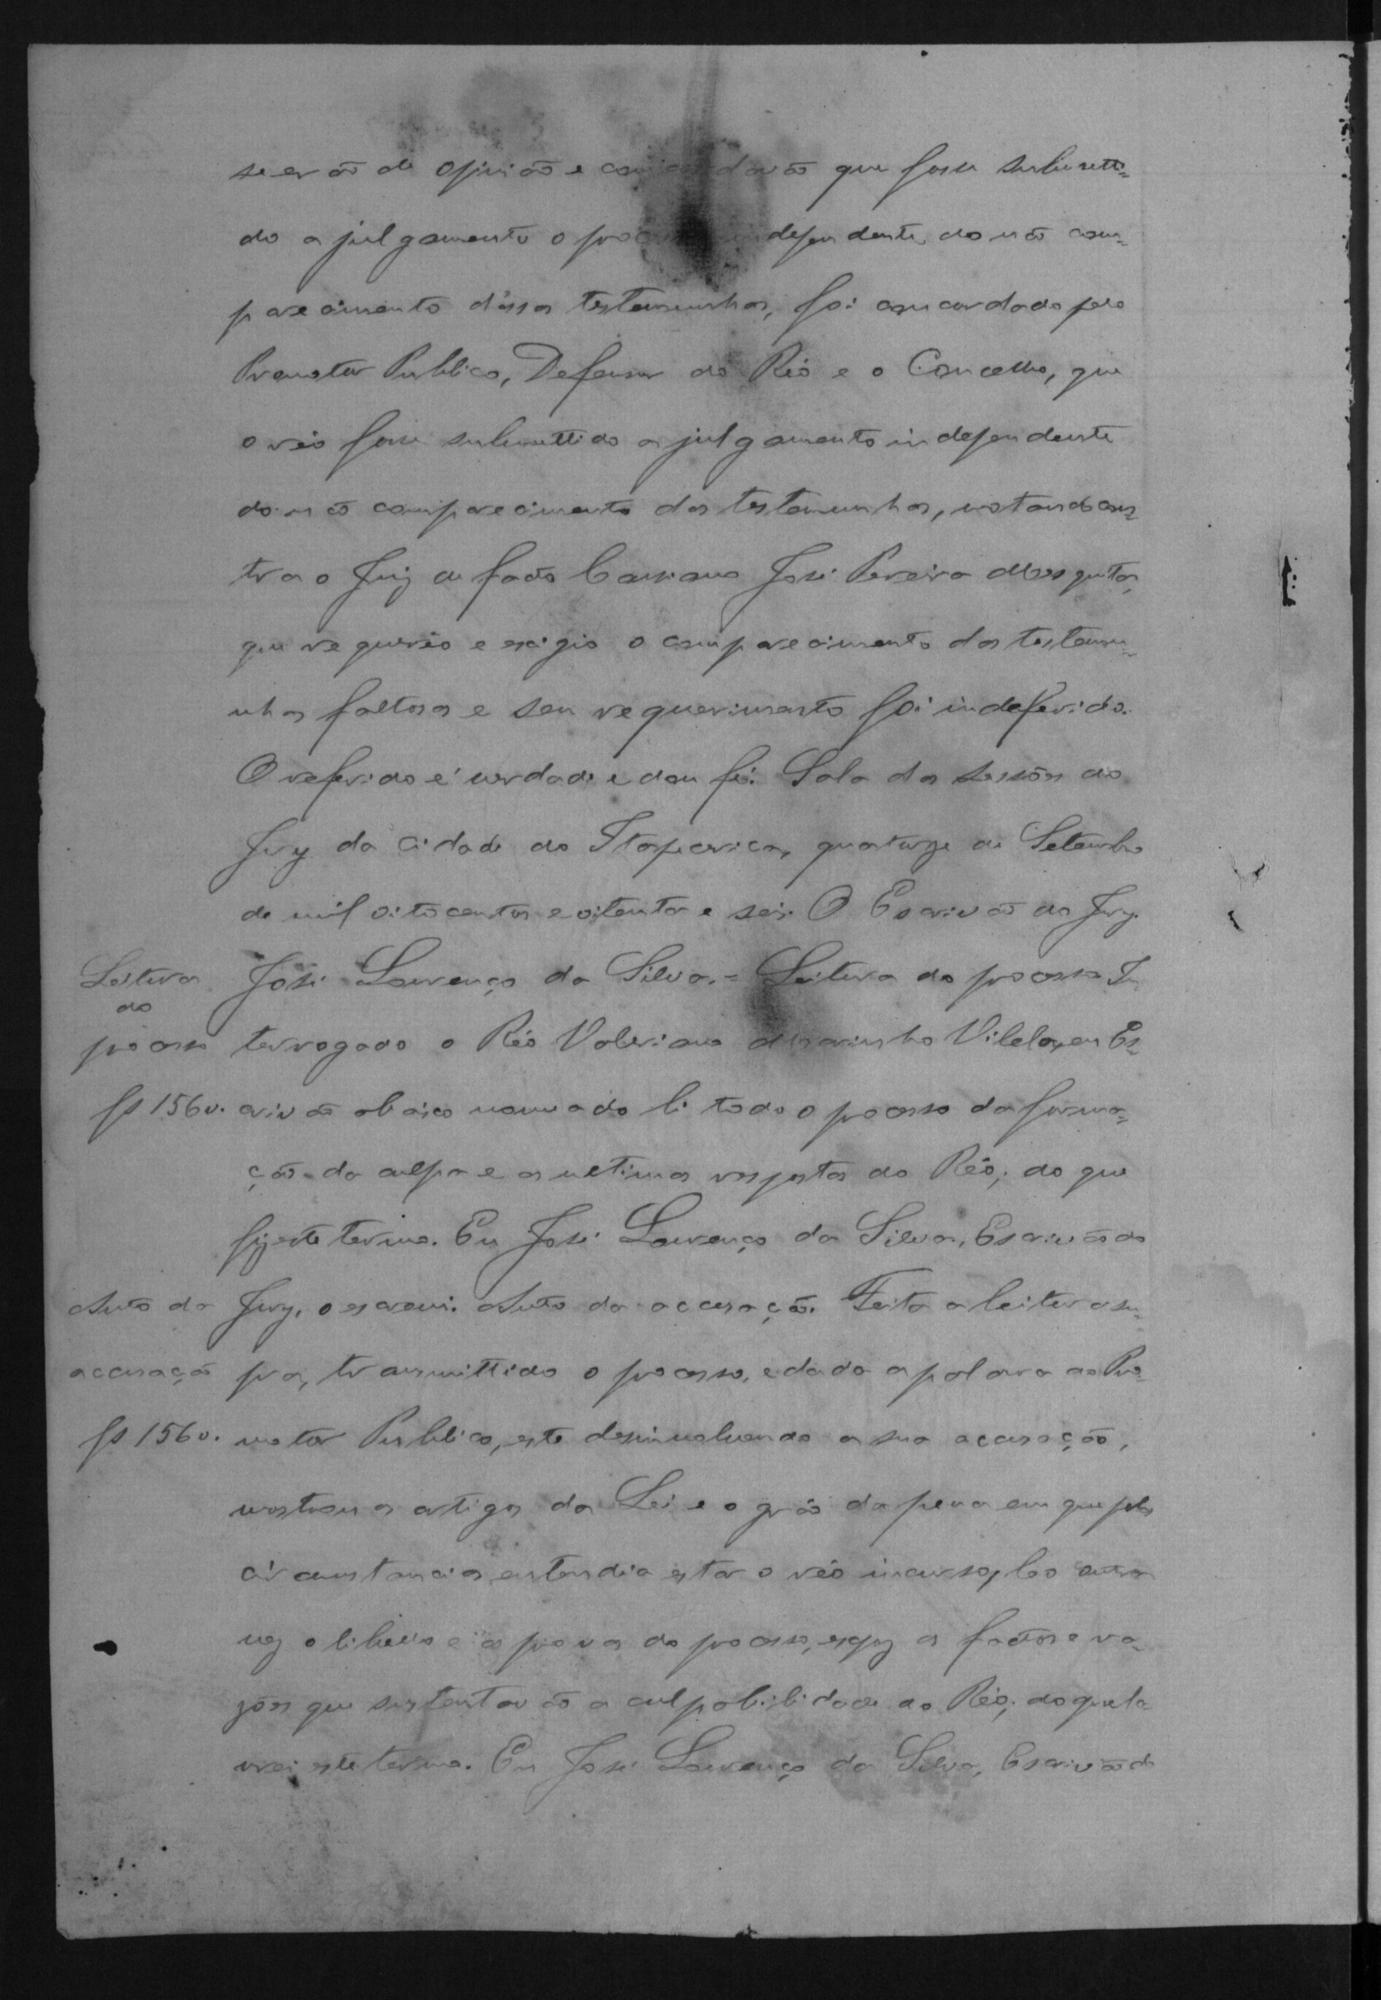 se erão de opinião e concordavão que fosse submetti-
do a julgamento o processo independente do não com-
parecimento dessas testemunhas, foi concordado pelo
Promotor Publico, Defensor do Réo e o Concelho, que
o réo fosse submettido a julgamento independente
do não comparecimento das testemunhas, votando con-
tra o Juiz de facto Cassiano José Pereira Mesquita,
que requereo e exigio o comparecimento das testemu-
nhas faltosas e seu requerimento foi indeferido.
O referido é verdade e dou fé. Sala das sessões do
Jury da cidade do Itapecerica, quatorze de Setembro
de mil oitocentos e oitenta e seis. O Escrivão do Jury.
Leitura José Lourenço da Silva. = Leitura do processo In
do
processo terrogado o Réo Valeriano Marinho Vilela, eu Es-
fs 156v. crivão abaico nomeado li todo o processo da forma-
ção da culpa e as ultimas respostas do Réo; do que
fiz este termo. Eu José Lourenço da Silva, Escrivão do
Auto da Jury, o escrevi. Auto da accusação. Feita a leitura su-
accusação pra, transmittido o processo, e dada a palavra ao Pro-
fs 156v. motor Publico, este desinvolvendo a sua accusação,
mostrou os artigos da Lei e o gráo da pena em que pelas
circumstancias entendia estar o réo incurso, leo outra
vez o libello e as provas do processo, expoz os factos e ra-
zões que sustentavão a culpabilidade do Réo; do que la-
vrei este termo. Eu José Lourenço da Silva, Escrivão do